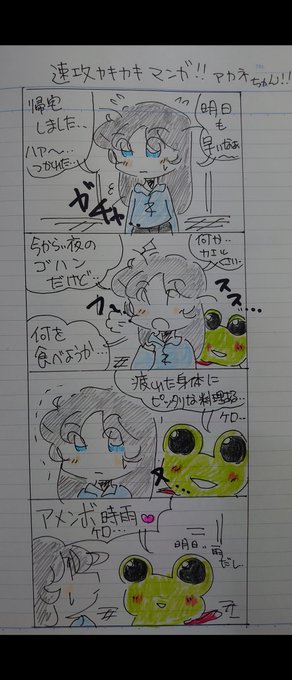 速攻カキカキマンガ!! アカネちゃん!!
明日
も
早いなぁ…
帰宅
しました…
ハァ〜…
つかれた…
ガチャ
何か…
カエル
今から夜の
ゴハン
だけど…
スス…
何を
食べようか…
疲れた身体に
ピッタリな料理…
ケロ…
アメンボ時雨
ケロ…
明日、雨
だし…